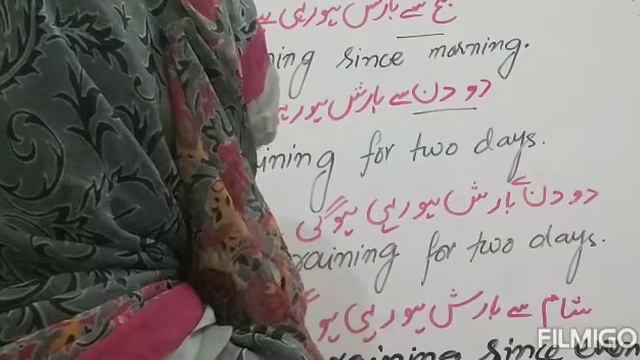 صبح سے بارش ہو رہی ہے
ning since morning.
دو دن سے بارش ہو رہی
ining for two days.
دو دن سے بارش ہو رہی ہوگی
raining for two days.
شام سے بارش ہو رہی ہوگی
raining since even
FILMIGO